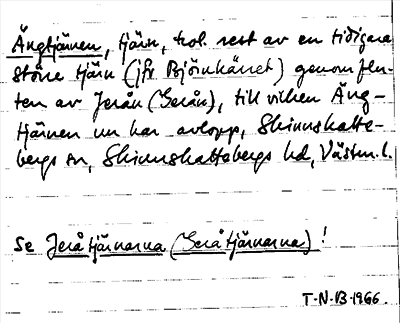 Ängtjärnen, tjärn, trol. rest av en tidigare
större tjärn (jfr Björnkärret) genomflu-
ten av Jerån (Gerån), till vilken Äng-
tjärnen nu har avlopp, Skinnskatte-
bergs sn, Skinnskattebergs hd, Västm. l.
Se Jeråtjärnarna (Geråtjärnarna)!
T-N-B-1966.